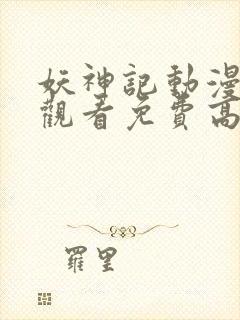 妖神記動漫
觀看免費高
羅里